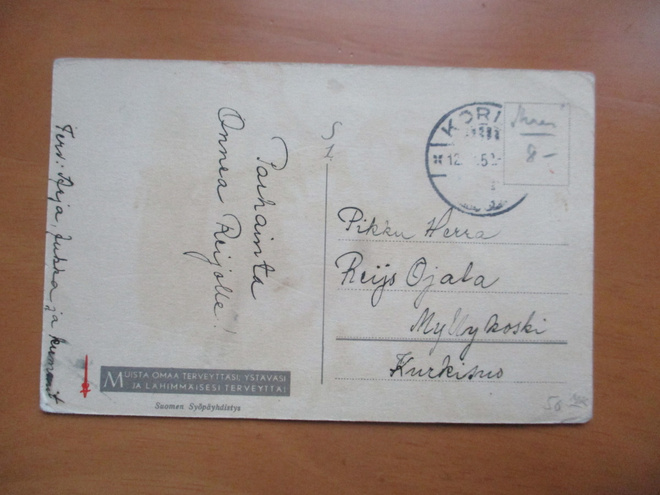 Parhainta
Onnea Reijolle!
Terv. Arja, Jukka ja kummit
MUISTA OMAA TERVEYTTÄSI, YSTÄVÄSI
JA LÄHIMMÄISESI TERVEYTTÄ!
Suomen Syöpäyhdistys
KORI
12
8-
Pikku Herra
Reijo Ojala
Myllykoski
Kurkisuo
50